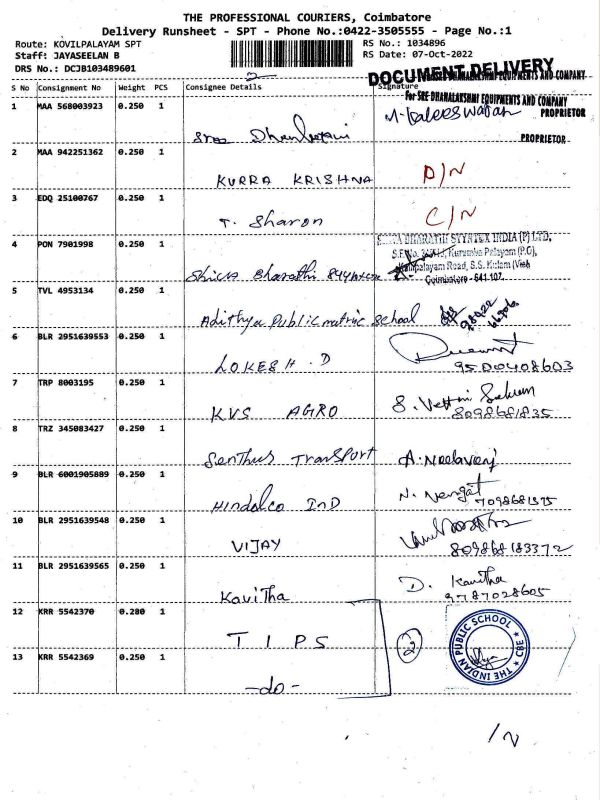 THE PROFESSIONAL COURIERS, Coimbatore
Delivery Runsheet - SPT - Phone No.:0422-3505555 - Page No.:1
Route: KOVILPALAYAM SPT RS No.: 1034896
Staff: JAYASEELAN B RS Date: 07-Oct-2022
DRS No.: DCJB103489601
DOCUMENT DELIVERY
S No Consignment No Weight PCS Consignee Details Signature
For SREE DHANALAKSHMI EQUIPMENTS AND COMPANY
PROPRIETOR
1 MAA 568003923 0.250 1
PROPRIETOR
2 MAA 942251362 0.250 1 KURRA KRISHNA D/N
3 EDQ 25100767 0.250 1 T. Sharon C/N
4 PON 7901998 0.250 1 Shiva Bharathi
BHARATH INDIA (P) LTD,
Kurumba Palayam (P.O),
Road, S.S. Kulam (Via)
Coimbatore - 641 107.
5 TVL 4953134 0.250 1 Adithya Public matric School
6 BLR 2951639553 0.250 1 LOKESH . D
9500408603
7 TRP 8003195 0.250 1 KVS AGRO
8098681835
8 TRZ 345083427 0.250 1 Senthur Transport A. Neelaveni
9 BLR 6001905889 0.250 1 Hindalco IND N. Vengat
10 BLR 2951639548 0.250 1 VIJAY
11 BLR 2951639565 0.250 1 Kavitha D. Kavitha
9787028605
12 KRR 5542370 0.280 1 T I P S 2
THE INDIAN PUBLIC SCHOOL CBE
13 KRR 5542369 0.250 1 -do-
/N